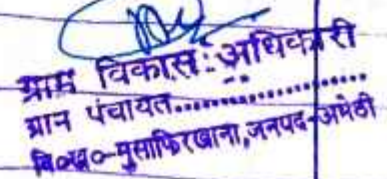 ग्राम विकास अधिकारी
ग्रान पंचायत.....................
बि०ख०-मुसाफिरखाना,जनपद-अमेठी